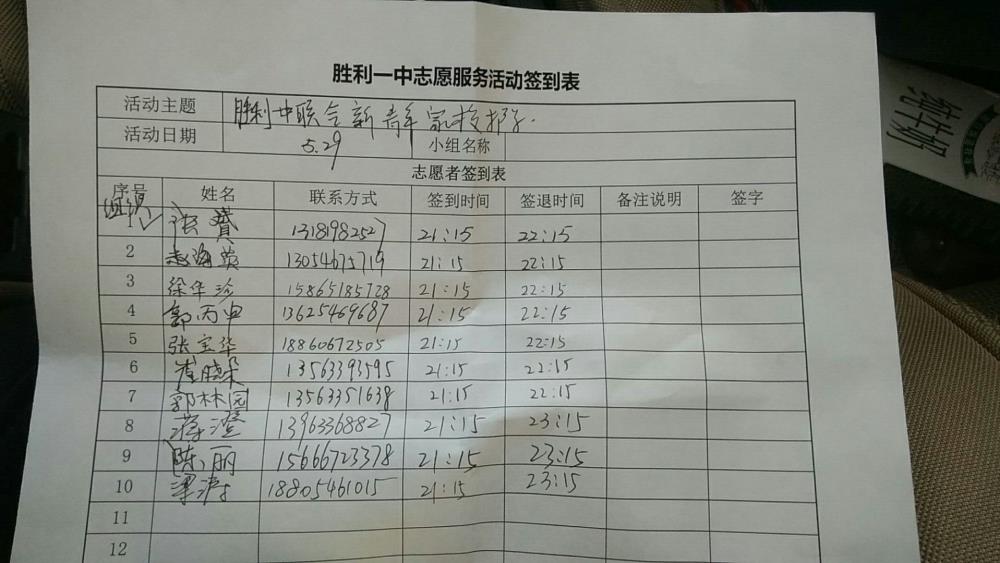 胜利一中志愿服务活动签到表
活动主题 胜利一中联合新青年家
活动日期 5.29 小组名称
志愿者签到表
序号 姓名 联系方式 签到时间 签退时间 备注说明 签字
组织
1 张赟 13181982527 21:15 22:15
2 赵海英 13054675719 21:15 22:15
3 徐华珍 15865185728 21:15 22:15
4 郭丙申 13625469687 21:15 22:15
5 张宝华 18860672505 21:15 22:15
6 崔晓朵 13563393595 21:15 22:15
7 郭林园 13563351638 21:15 22:15
8 蒋澄 13963368827 21:15 23:15
9 陈丽 15666723378 21:15 23:15
10 梁涛 18805461015 21:15 23:15
11
12